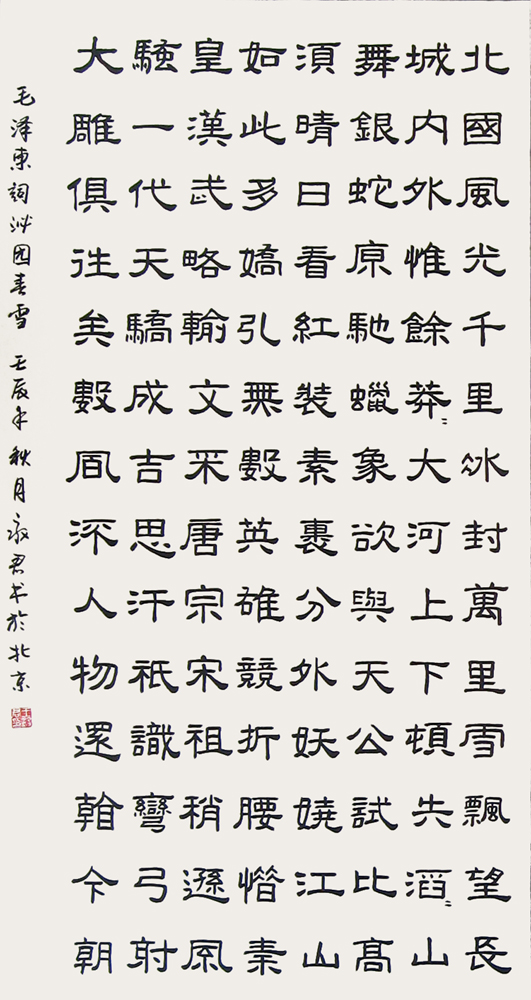 北國風光千里冰封萬里雪飄望長
城内外惟餘莽〻大河上下頓失滔〻山
舞銀蛇原馳蠟象欲與天公試比高
須晴日看紅裝素裹分外妖嬈江山
如此多嬌引無數英雄競折腰惜秦
皇漢武略輸文采唐宗宋祖稍遜風
騷一代天驕成吉思汗祇識彎弓射
大雕俱往矣數風流人物還看今朝
毛澤東詞沁園春雪 壬辰年秋月永君书於北京